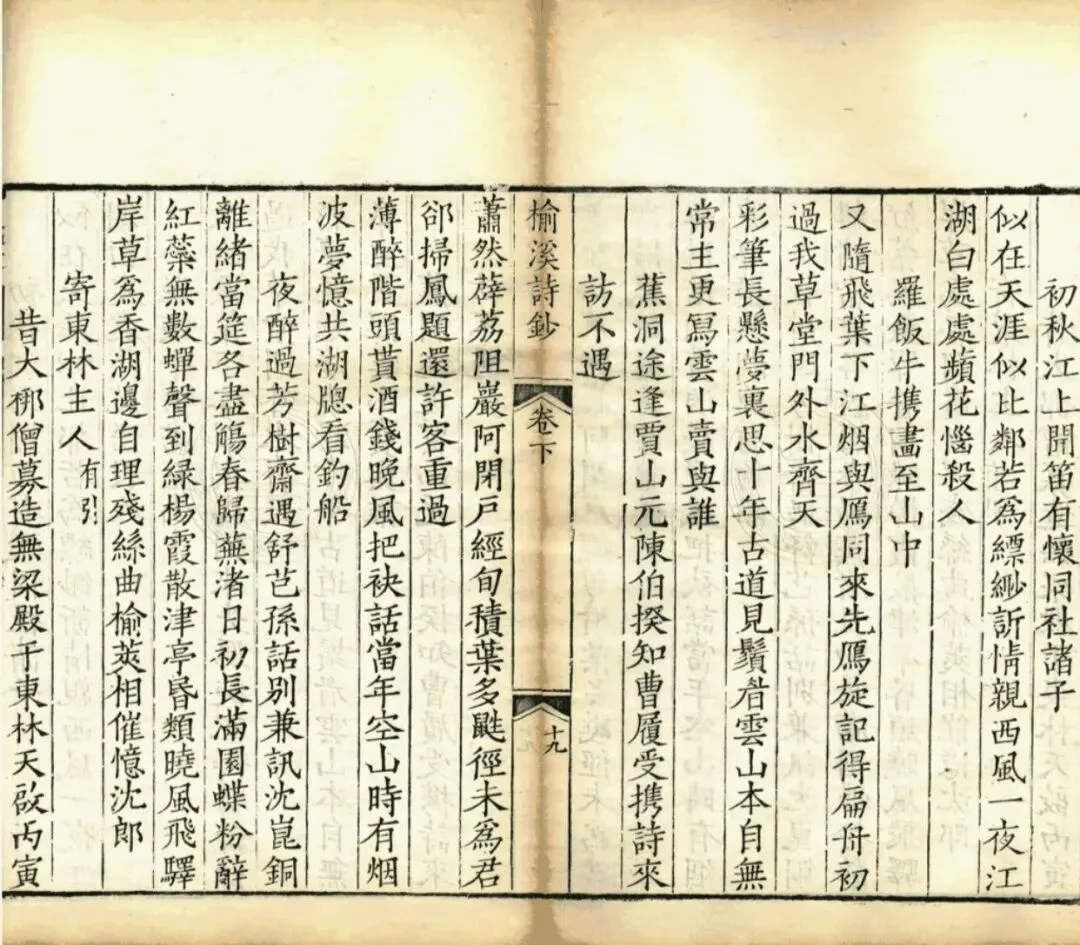 初秋江上聞笛有懷同社諸子
似在天涯似比鄰若爲縹緲訴情親西風一夜江
湖白處處蘋花惱殺人
羅飯牛携畫至山中
又隨飛葉下江烟與鴈同來先鴈旋記得扁舟初
過我草堂門外水齊天
彩筆長懸夢裏思十年古道見鬚眉雲山本自無
常主更寫雲山賣與誰
蕉洞途逢賈山元陳伯揆知曹履受携詩來
訪不遇
榆溪詩鈔
卷下
十九
蕭然薜荔阻巖阿閉戸經旬積葉多鼪徑未爲君
郤掃鳳題還許客重過
薄醉階頭貰酒錢晚風把袂話當年空山時有烟
波夢憶共湖牕看釣船
夜醉過芳樹齋遇舒芑孫話別兼訊沈崑銅
離緒當筵各盡觴春歸蕪渚日初長滿園蝶粉辭
紅蘂無數蟬聲到緑楊霞散津亭昏類曉風飛驛
岸草爲香湖邊自理殘絲曲榆莢相催憶沈郎
寄東林主人有引
昔大𣑽僧募造無梁殿于東林天啟丙寅